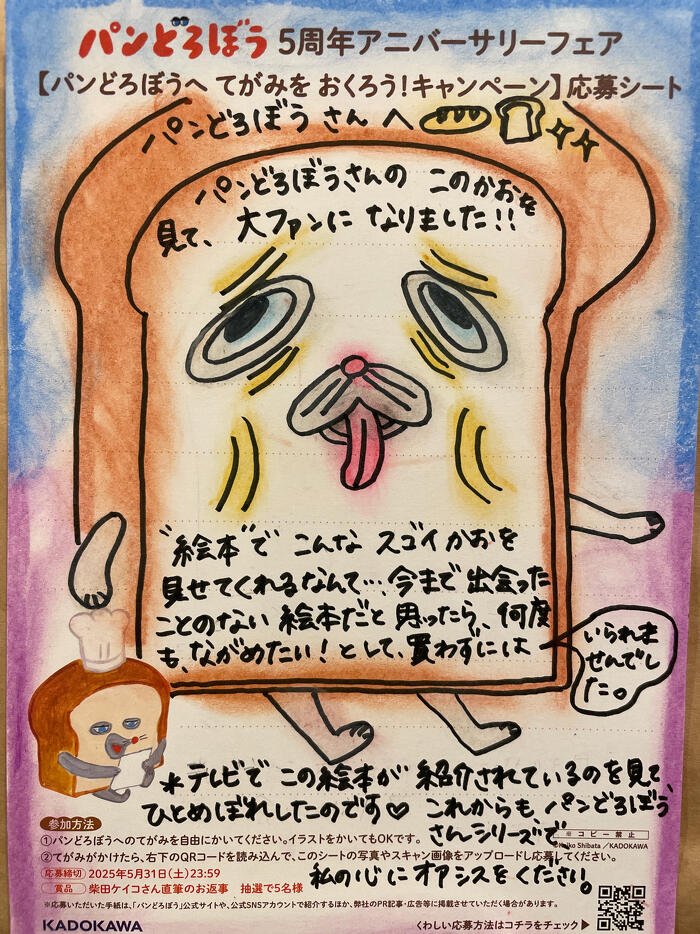 パンどろぼう 5周年アニバーサリーフェア
【パンどろぼうへ てがみを おくろう!キャンペーン】応募シート
パンどろぼう さん へ
パンどろぼうさんの このかおを
見て、大ファンに なりました!!
"絵本"で こんな スゴイかおを
見せてくれるなんて…今まで出会った
ことのない 絵本だと 思ったら、何度
も、ながめたい!として、買わずには
いられま
せんでし
た。
*テレビで この絵本が 紹介されているのを見て
ひとめぼれしたのです♡ これからも、パンどろぼう
さんシリーズで、
私の心に オアシスをください。
参加方法
※コピー禁止
①パンどろぼうへのてがみを自由にかいてください。イラストをかいてもOKです。
©Keiko Shibata/KADOKAWA
②てがみがかけたら、右下のQRコードを読み込んで、このシートの写真やスキャン画像をアップロードし応募してください。
応募締切 2025年5月31日(土)23:59
賞品 柴田ケイコさん直筆のお返事 抽選で5名様
※応募いただいた手紙は、「パンどろぼう」公式サイトや、公式SNSアカウントで紹介するほか、弊社のPR記事・広告等に掲載させていただく場合があります。
KADOKAWA
くわしい応募方法はコチラをチェック▶